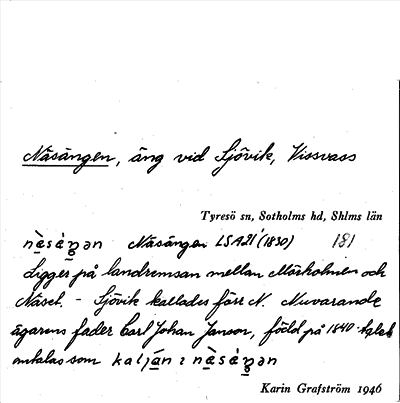 Näsängen, äng vid Sjövik, Vissvass
Tyresö sn, Sotholms hd, Shlms län
Näsängen LSA21 (1830) 181
Ligger på landremsan mellan Mörkholmen och
Näset. - Sjövik kallades förr N. Nuvarande
ägarens fader Carl Johan Janson, född på 1840-talet
omtalas som
Karin Grafström 1946